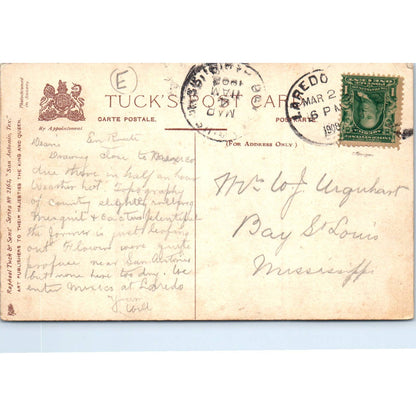 E
TUCK'S POST CARD
CARTE POSTALE.
POSTKARTE.
By Appointment
(FOR ADDRESS ONLY.)
LAREDO
MAR 2
6 PM
1909
MAR
4
11 AM
1909
Raphael Tuck & Sons' Series No. 2362, "San Antonio, Tex."
ART PUBLISHERS TO THEIR MAJESTIES THE KING AND QUEEN.
En Route
Drawing close to Mexico
due there in half an hour
Weather hot topography
of country slightly rolling
Mesquit & cactus plentiful
the former is just leafing
out Flowers were quite
profuse near San Antonio
but none here too dry. We
enter Mexico at Laredo
Your
Will
Mrs W J Urquhart
Bay St Louis
Mississippi